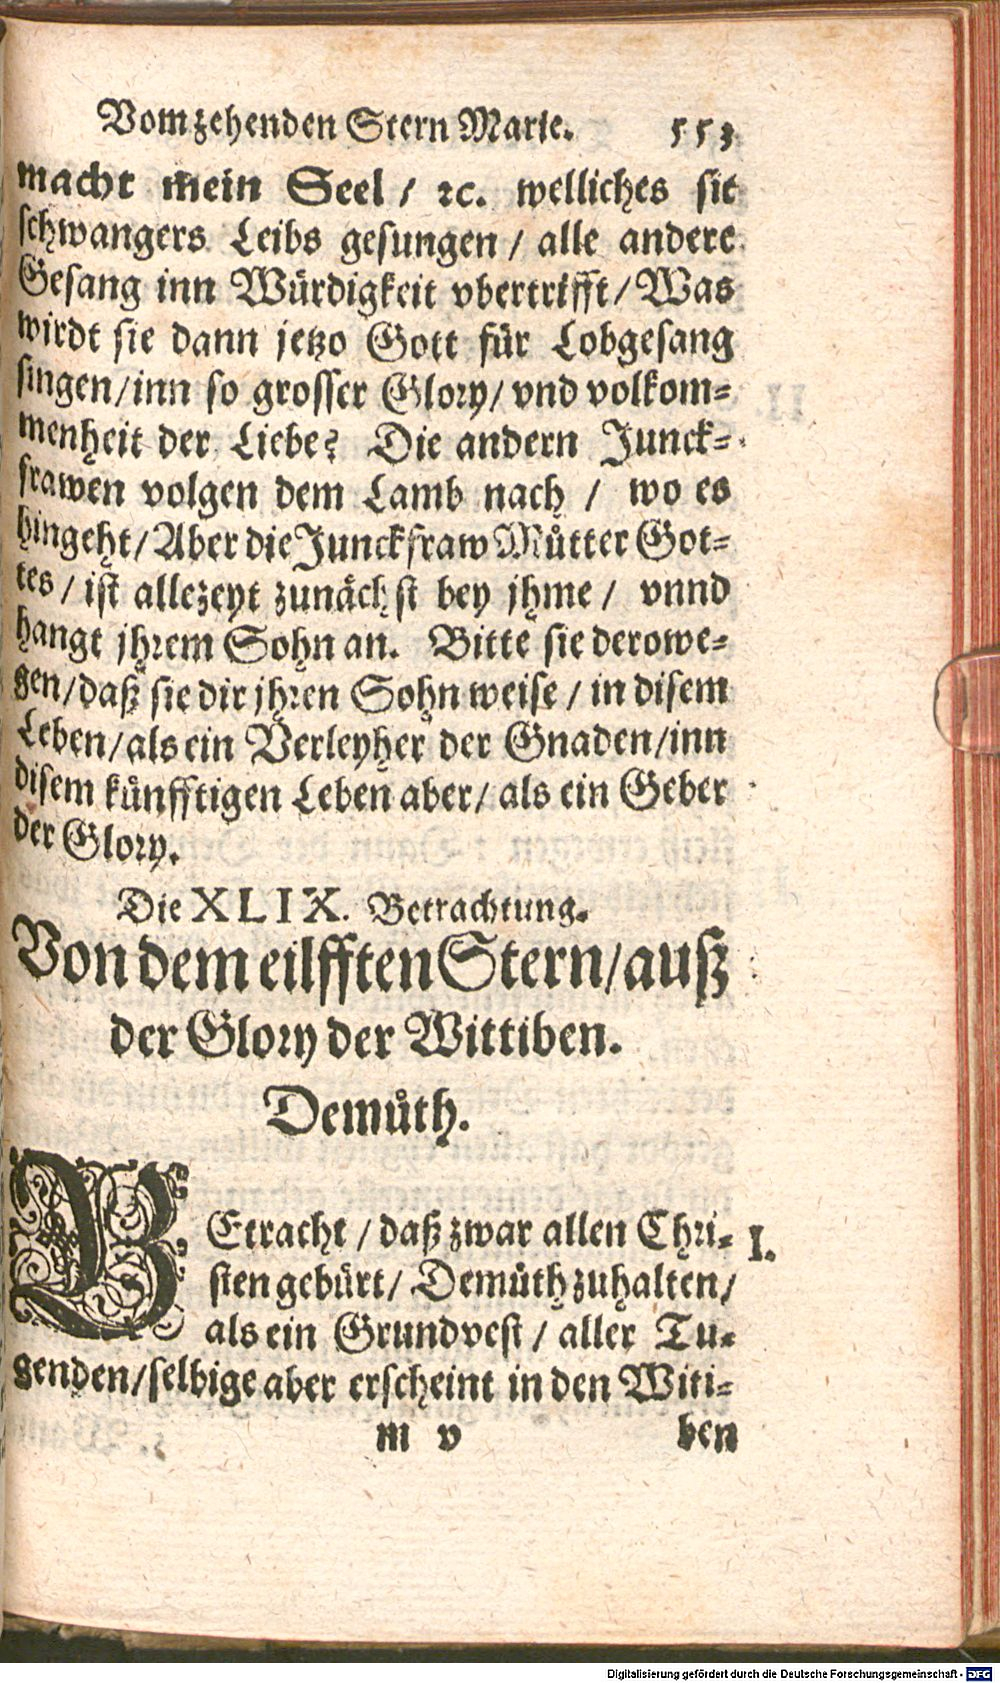 Vom zehenden Stern Marie. 553
macht mein Seel / ꝛc. welliches sie
schwangers Leibs gesungen / alle andere
Gesang inn Würdigkeit vbertrifft / Was
wirdt sie dann jetzo Gott für Lobgesang
singen / inn so grosser Glory / vnd volkom⸗
menheit der Liebe? Die andern Junck⸗
frawen volgen dem Lamb nach / wo es
hingeht / Aber die Junckfraw Můtter Got⸗
tes / ist allezeyt zunächst bey jhme / vnnd
hangt jhrem Sohn an. Bitte sie derowe⸗
gen / daß sie dir jhren Sohn weise / in disem
Leben / als ein Verleyher der Gnaden / inn
disem künfftigen Leben aber / als ein Geber
der Glory.
Die XLIX. Betrachtung.
Von dem eilfften Stern / auß
der Glory der Wittiben.
Demůth.
BEtracht / daß zwar allen Chri⸗ I.
sten gebürt / Demůth zuhalten /
als ein Grundvest / aller Tu⸗
genden / selbige aber erscheint in den Witi⸗
m v ben
Digitalisierung gefördert durch die Deutsche Forschungsgemeinschaft - DFG